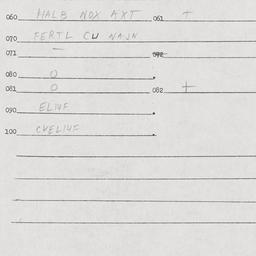 060 HALB NOX AXT 061 +
070 FERTL CU NAJN
071 — 072
080 O
081 O 082 +
090 ELI4F
100 CVELI4F